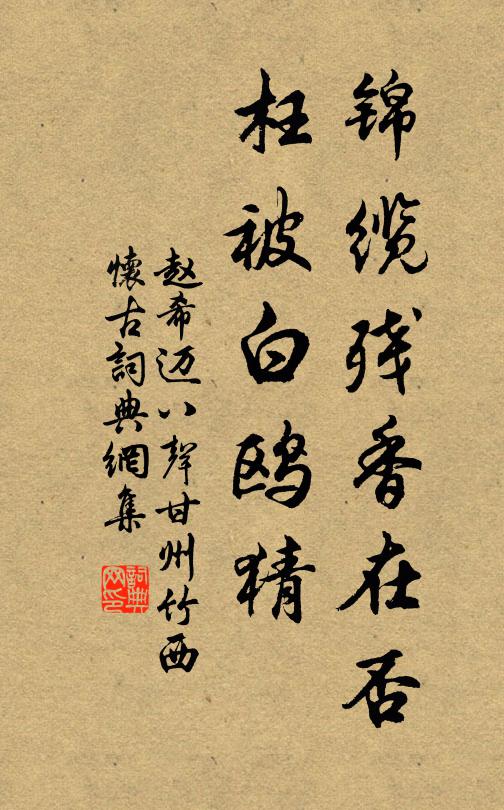 锦缆残香在否
枉被白鸥猜
赵希迈八声甘州竹西
懷古詞典網集
詞典
网印